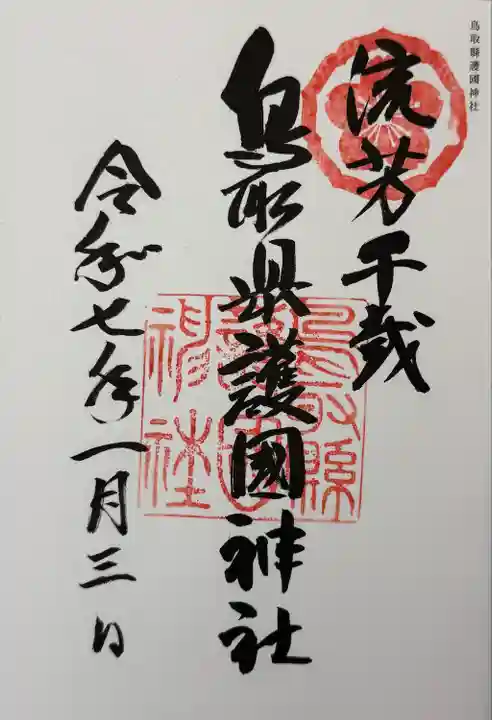 鳥取縣護國神社
流芳千載
鳥取県護國神社
令和七年一月三日
鳥取縣護國神社